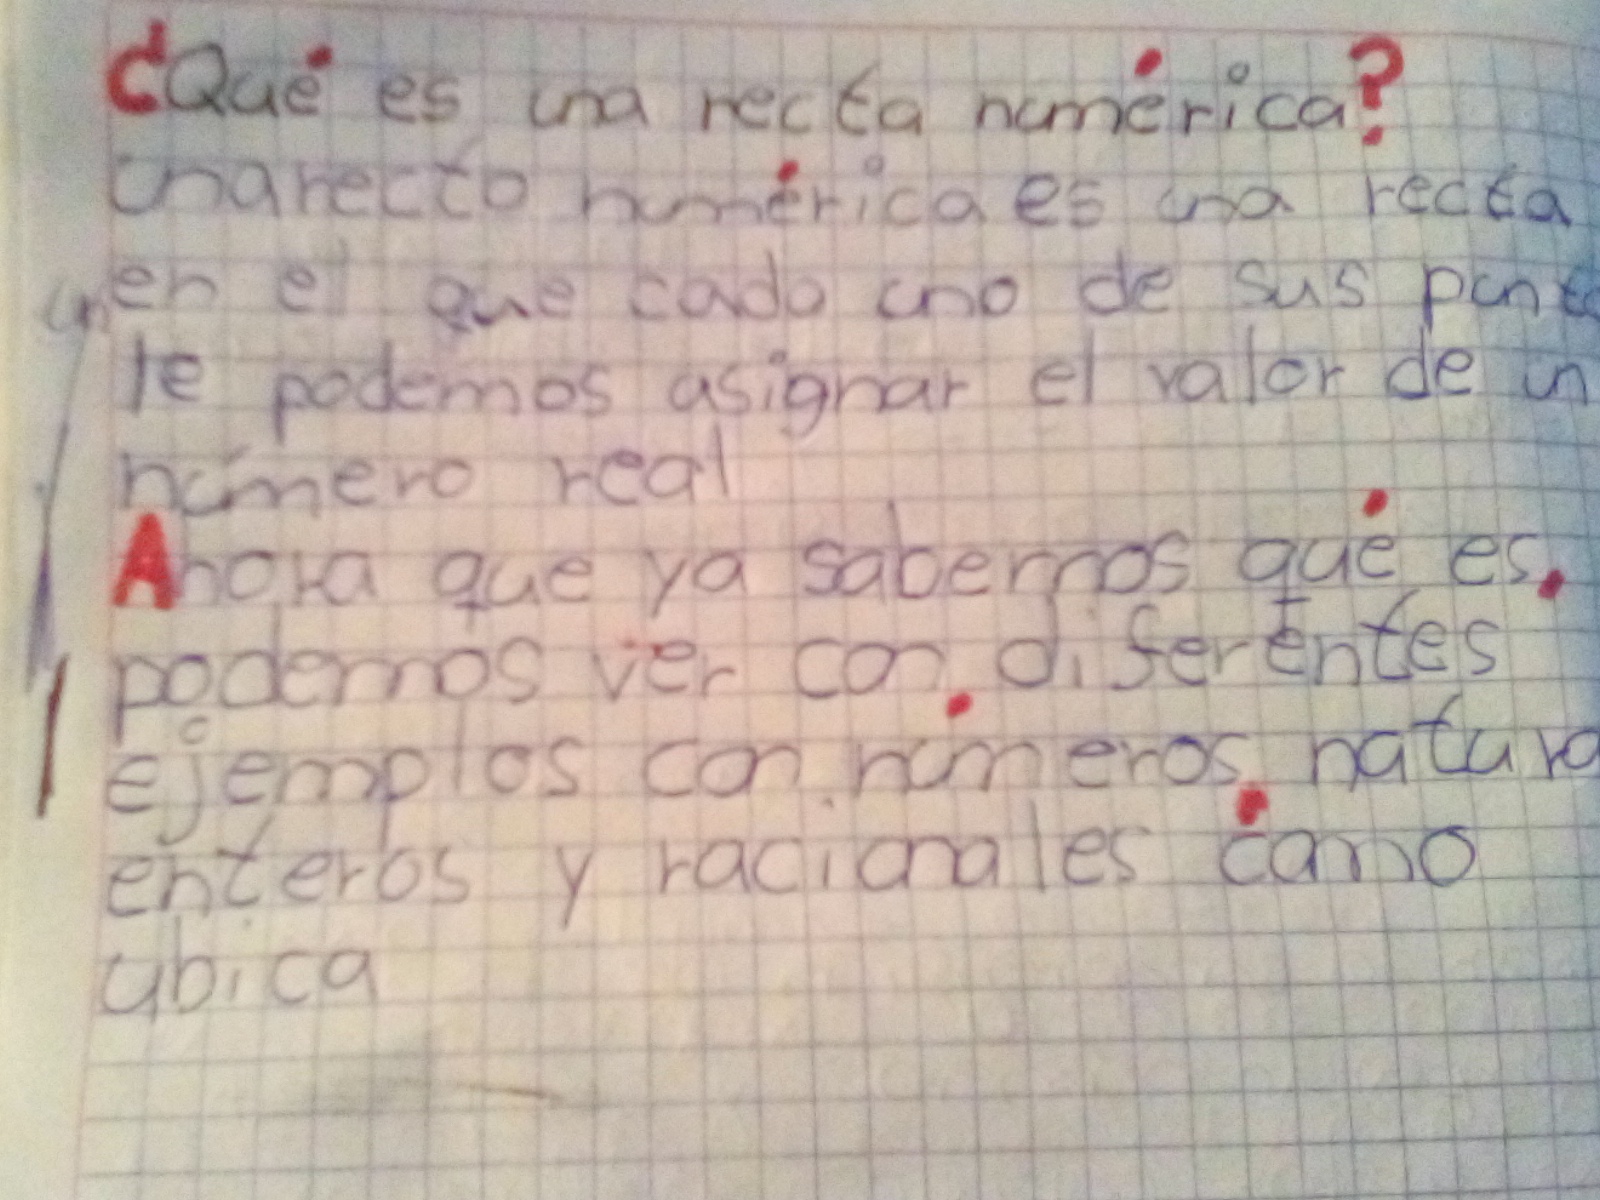 ¿Qué es una recta numérica?
una recta numérica es una recta
en el que cada uno de sus punto
le podemos asignar el valor de un
número real
Ahora que ya sabemos qué es.
podemos ver con diferentes
ejemplos con números natura
enteros y racionales como
ubica